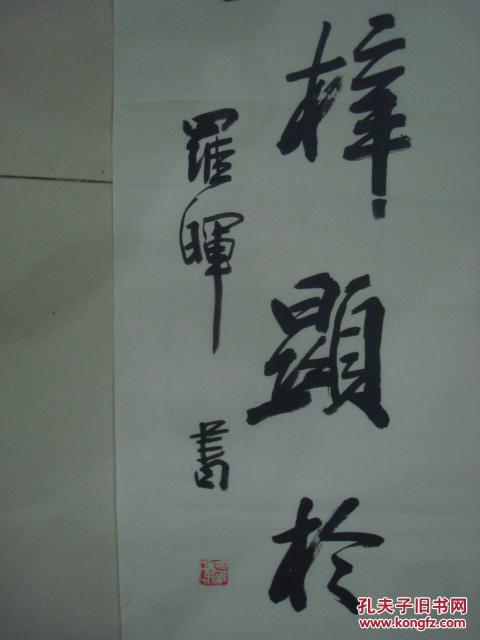 梓顯於
羅暉書
孔夫子旧书网
www.kongfz.com